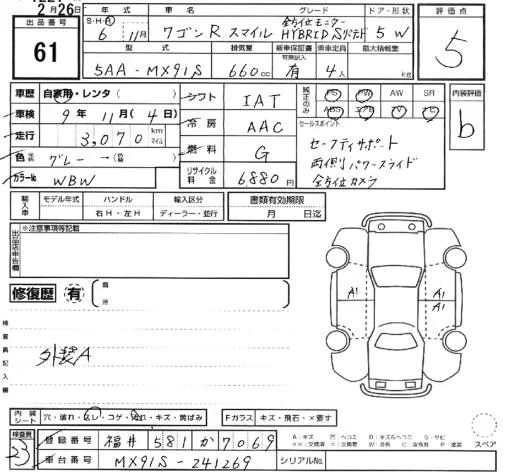 2月26日
出品番号
61
年式
S・H・R
6 11月
車名
ワゴンR スマイル
グレード
全方位モニター
HYBRID Sリミテド
ドア・形状
5W
評価点
5
型式
5AA-MX91S
排気量
660cc
新車保証書
有効記入
有
乗車定員
4人
最大積載量
kg
車歴 自家用・レンタ( )
車検 9年 11月(4日)
走行 3,070 km マイル
色 グレー→( )
カラーNo WBW
シフト IAT
冷房 AAC
燃料 G
リサイクル料金 6880円
純正のみ
PS PW AW SR
ABS エアB TV ナビ
セールスポイント
セーフティサポート
両側パワースライド
全方位カメラ
内装評価
b
輸入車
モデル年式
ハンドル
右H・左H
輸入区分
ディーラー・並行
書類有効期限
月 日迄
出品店申告欄
※注意事項等記載
修復歴 有
箇所
検査員記入欄
外装A
A1 A1
内装シート 穴・破れ・スレ・コゲ・汚れ・キズ・黄ばみ
Fガラス キズ・飛石・×要す
スペア
検査員
23
登録番号 福井 581 か 7069
車台番号 MX91S-241269
シリアルNo.